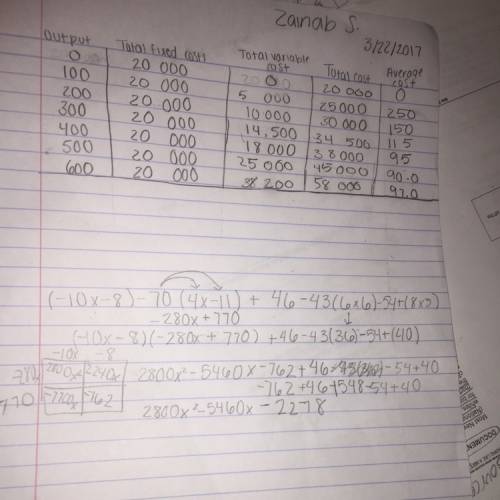 Zainab S.
3/22/2017
Output Total fixed costs Total variable cost Total cost Average cost
0 20 000 0 20 000 0
100 20 000 5 000 25000 250
200 20 000 10 000 30 000 150
300 20 000 14,500 34 500 115
400 20 000 18 000 38000 95
500 20 000 25 000 45000 90.0
600 20 000 38 200 58 000 97.0
(-10x-8)-70(4x-11)+46-43(6x6)-54+(8x5)
-280x+770
(-10x-8)(-280x+770)+46-43(36)-54+(40)
-10x -8
2800x² 2240x 2800x²-5460x-762+46 -54+40
770 -7700x -762 -762+46+1548-54+40
2800x²-5460x-2278